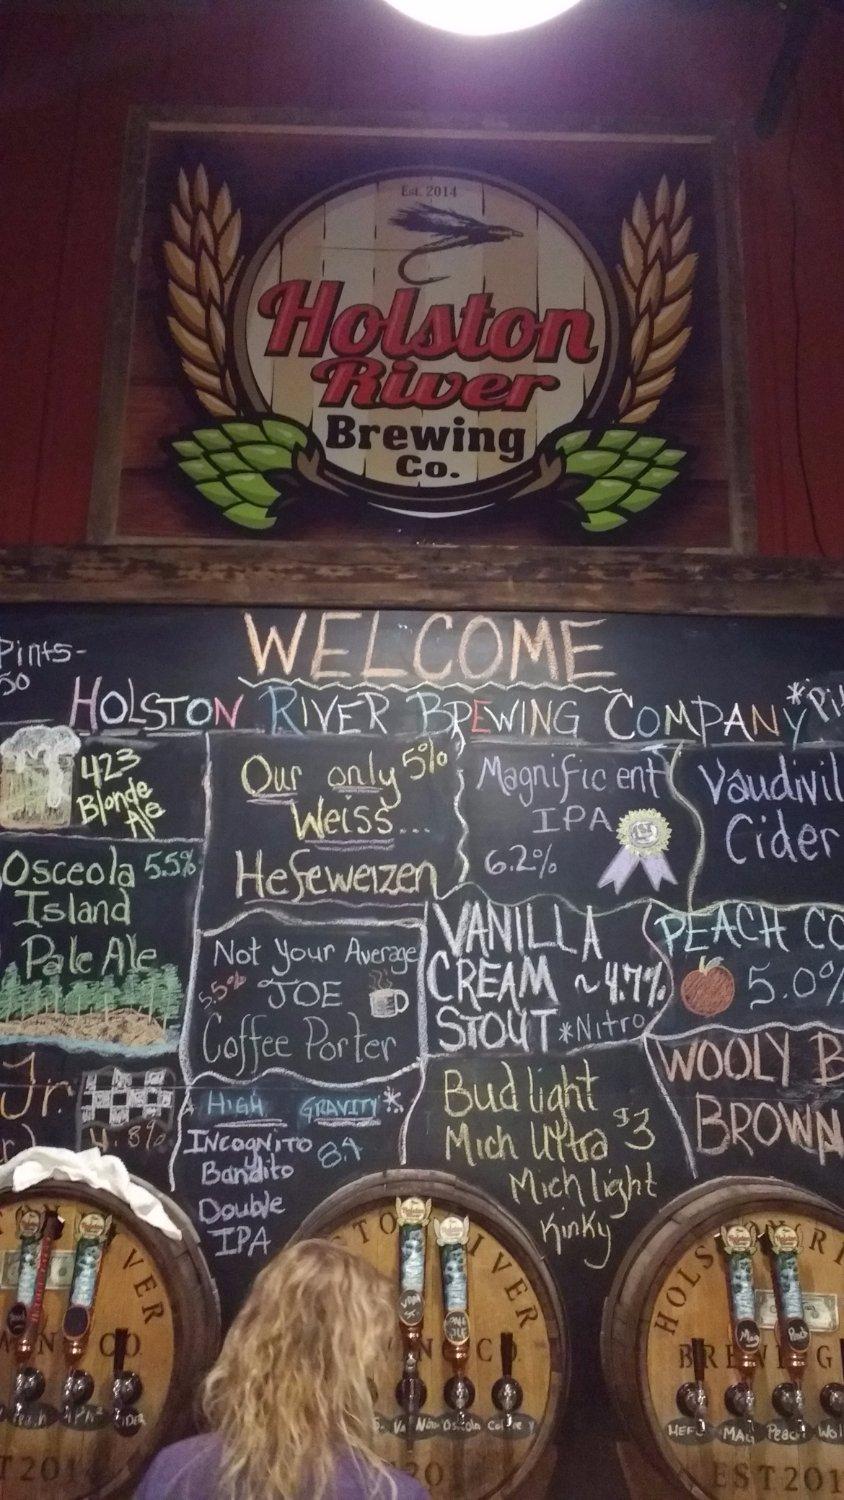 Est. 2014
Holston
River
Brewing
Co.
WELCOME
Pints-
50
HOLSTON RIVER BREWING COMPANY
423
Blonde
Ale
Our only 5%
Weiss...
Hefeweizen
Magnificent
IPA
6.2%
1st
Vaudivil
Cider
Osceola 5.5%
Island
Pale Ale
Not Your Average
5.5% JOE
Coffee Porter
VANILLA
CREAM ~4.7%
STOUT *Nitro
PEACH CO
5.0%
Jr.
4.8%
HIGH GRAVITY*
INCOGNITO 8.1
Bandito
Double
IPA
Bud light
Mich Ultra $3
Mich light
Kinky
WOOLY B
BROWN
VER
CO.
EST 2014
RIVER
CO.
HOLSTON RI
BREWING
EST 201
Peach
CIDER
Osceola
HEF
MAG
Peach